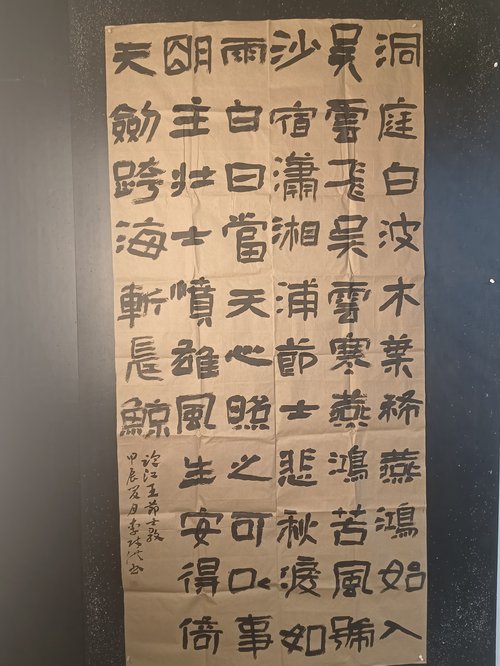 洞庭白波木葉稀燕鴻始入
吳雲飛吳雲寒燕鴻苦風號
沙宿瀟湘浦節士悲秋淚如
雨白日當天心照之可以事
朙主壯士憤雄風生安得倚
天劒跨海斬長鯨
臨江王節士歌
甲辰夏月李书